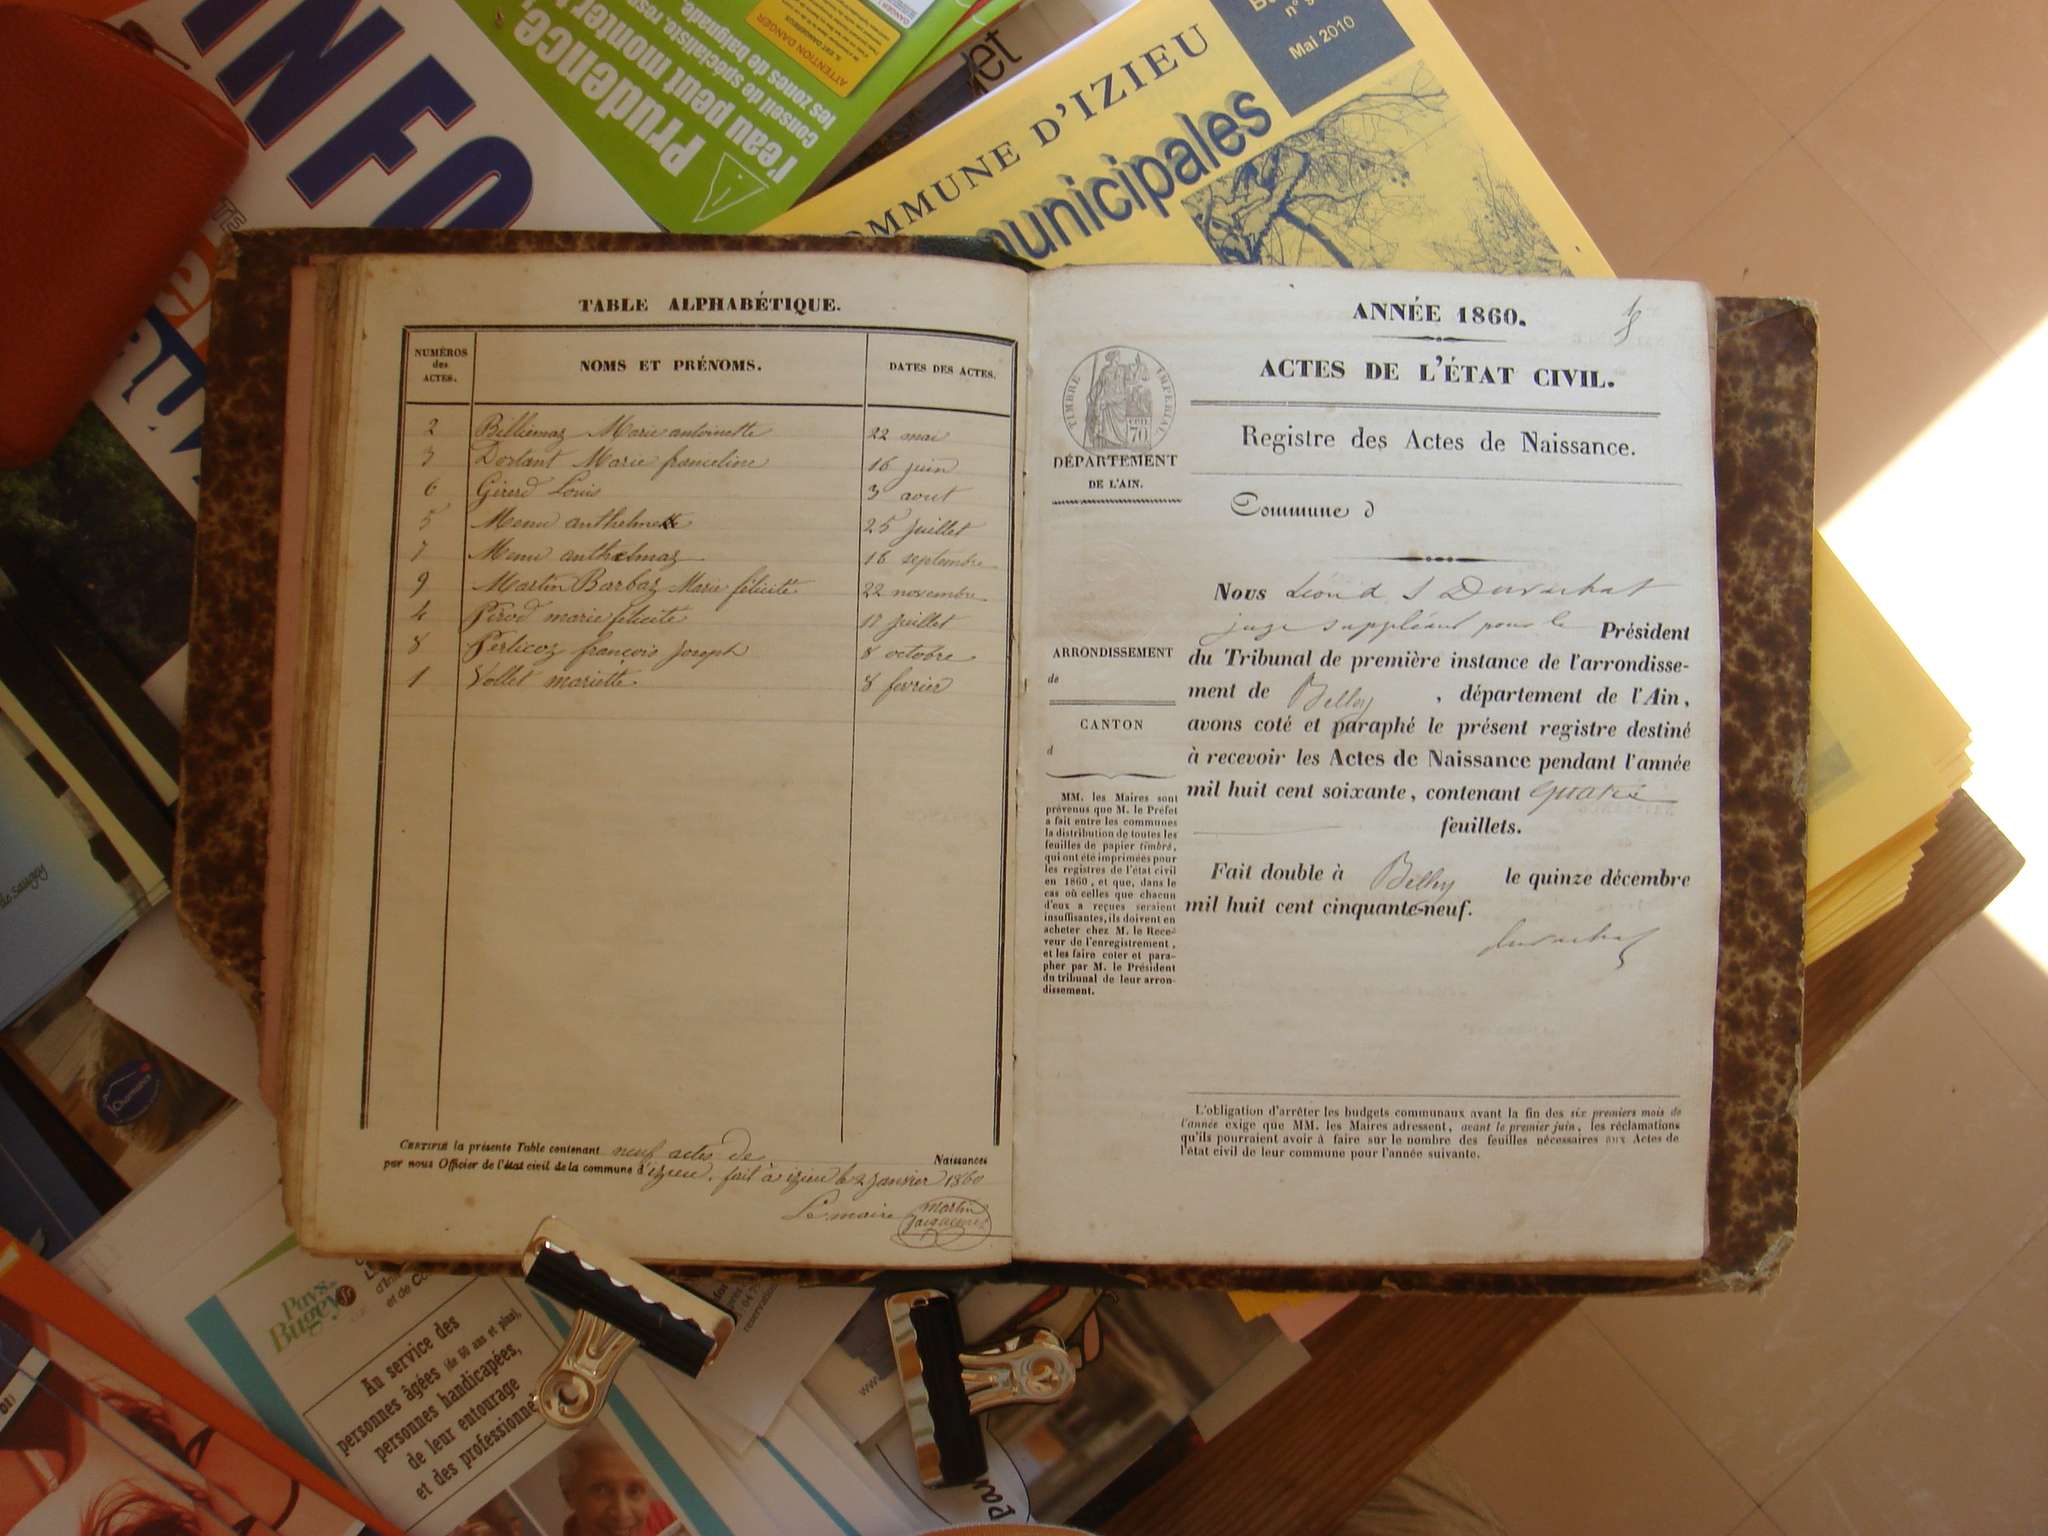 INFO
Prudence,
l'eau peut monter
Conseil de spécialiste,
les zones de baignade,
ATTENTION DANGER
COMMUNE D'IZIEU
municipales
Mai 2010
TABLE ALPHABÉTIQUE.
NUMÉROS des ACTES. NOMS ET PRÉNOMS. DATES DES ACTES.
2 Billiemaz Marie antoinette 22 mai
3 Dortant Marie franceline 16 juin
6 Girerd Louis 3 aout
5 Menu anthelme 25 juillet
7 Menu anthelmaz 16 septembre
9 Martin Barbaz Marie félicité 22 novembre
4 Pirod marie félicité 17 juillet
8 Perticoz françois Joseph 8 octobre
1 Vollet mariette 8 fevrier
CERTIFIÉ la présente Table contenant neuf actes de Naissances
par nous Officier de l'état civil de la commune d'izieu, fait à izieu le 2 janvier 1860
Le maire martin
jacquemet
ANNÉE 1860.
ACTES DE L'ÉTAT CIVIL.
TIMBRE IMPÉRIAL
70
Registre des Actes de Naissance.
DÉPARTEMENT
DE L'AIN.
Commune d
ARRONDISSEMENT
de
CANTON
d
MM. les Maires sont
prévenus que M. le Préfet
a fait entre les communes
la distribution de toutes les
feuilles de papier timbré,
qui ont été imprimées pour
les registres de l'état civil
en 1860, et que, dans le
cas où celles que chacun
d'eux a reçues seraient
insuffisantes, ils doivent en
acheter chez M. le Rece-
veur de l'enregistrement,
et les faire coter et para-
pher par M. le Président
du tribunal de leur arron-
dissement.
Nous Duvachat
juge suppléant pour le Président
du Tribunal de première instance de l'arrondisse-
ment de Belley, département de l'Ain,
avons coté et paraphé le présent registre destiné
à recevoir les Actes de Naissance pendant l'année
mil huit cent soixante, contenant quatre
feuillets.
Fait double à Belley le quinze décembre
mil huit cent cinquante-neuf.
Duvachat
L'obligation d'arrêter les budgets communaux avant la fin des six premiers mois de
l'année exige que MM. les Maires adressent, avant le premier juin, les réclamations
qu'ils pourraient avoir à faire sur le nombre des feuilles nécessaires aux Actes de
l'état civil de leur commune pour l'année suivante.
Chamonix
Pays
Bugey
Au service des
personnes âgées (de 60 ans et plus),
personnes handicapées,
de leur entourage
et des professionnels